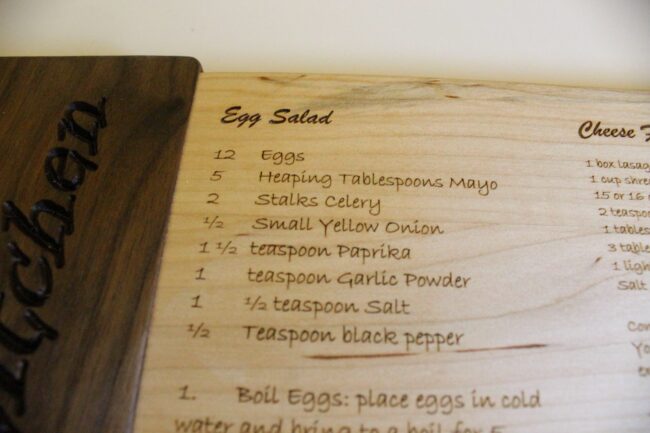 Egg Salad
12 Eggs
5 Heaping Tablespoons Mayo
2 Stalks Celery
½ Small Yellow Onion
1 ½ teaspoon Paprika
1 teaspoon Garlic Powder
1 ½ teaspoon Salt
½ Teaspoon black pepper
1. Boil Eggs: place eggs in cold
water and bring to a boil for 5
Cheese
1 box
1 cup
15 or 16
2
1
3
1
Salt